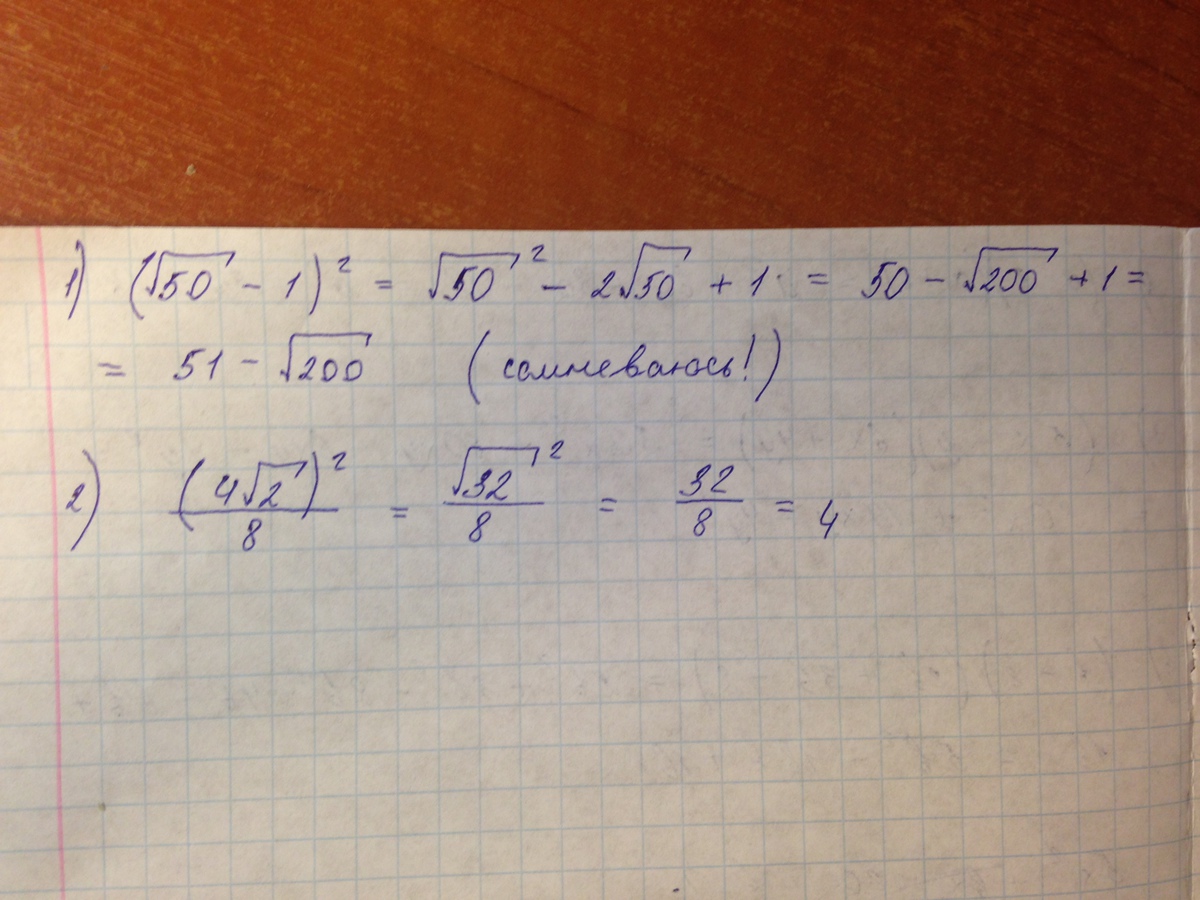 1) (√50 - 1)² = √50² - 2√50 + 1 = 50 - √200 + 1 =
= 51 - √200 (сомневаюсь!)
2) (4√2)²/8 = √32²/8 = 32/8 = 4